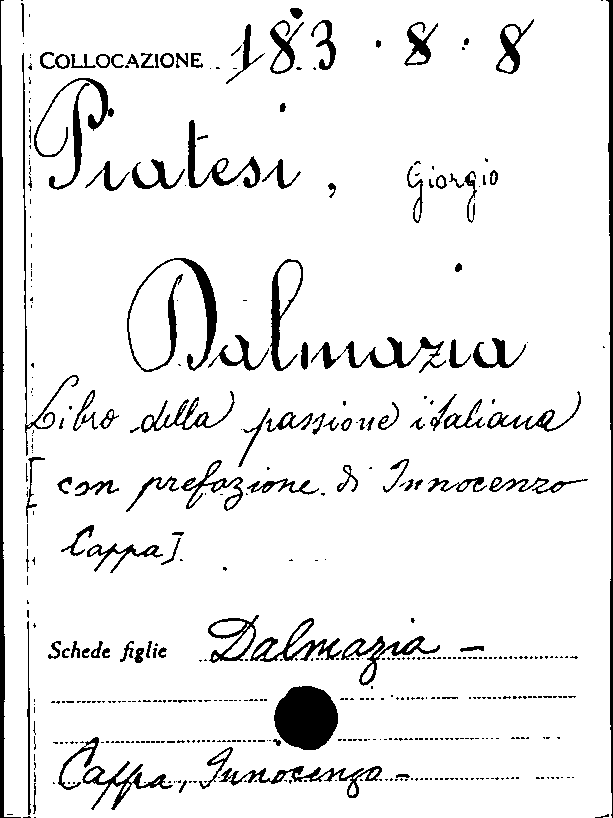 COLLOCAZIONE 183.8.8
Piatesi, Giorgio
Dalmazia
Libro della passione italiana
[con prefazione di Innocenzo
Cappa]
Schede figlie Dalmazia -
Cappa, Innocenzo -